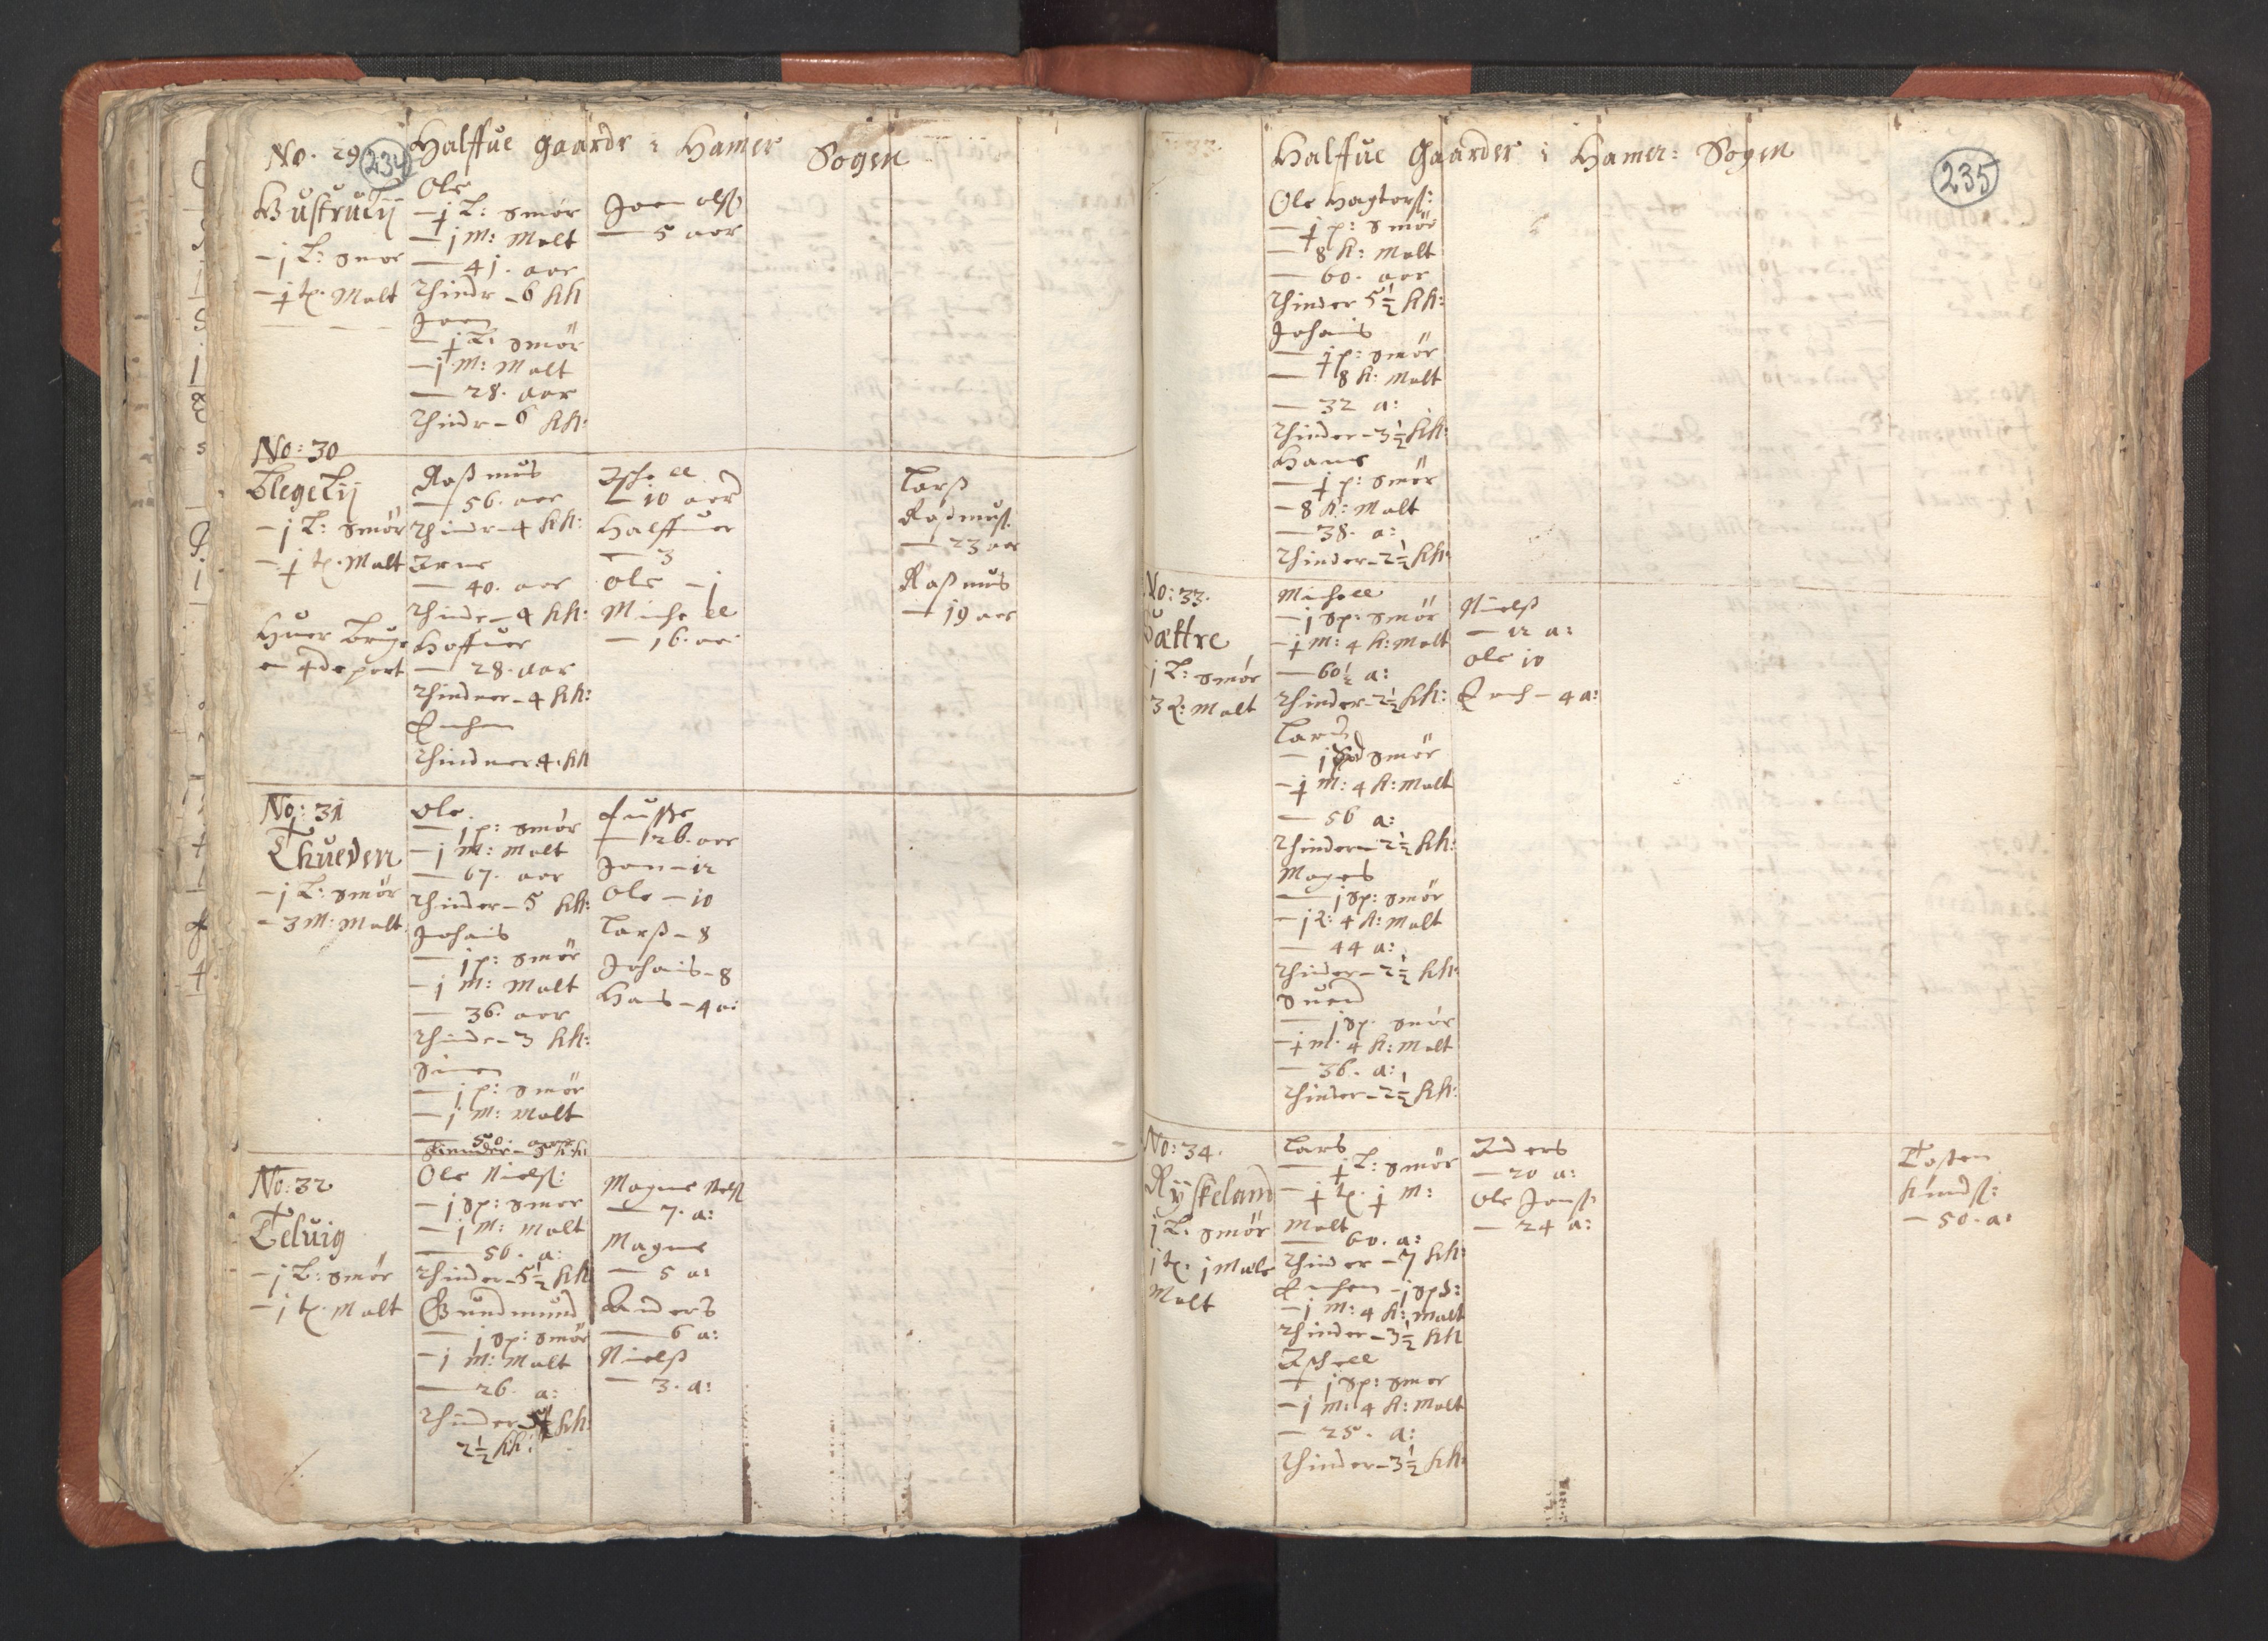 No. 29
234
Halffue gaarde i Hamer Sogen
Hustrulij
- j L: smør
- ½ tp. Malt
Ole
- ½ L: smør
- j M: Malt
- 41. aar
Thinde - 6 kh
Joen
- ½ L: smør
- j M: Malt
- 28. aar
Thinde - 6 kh:
Joen olß
- 5 aar
No: 30
Tlegelij
- j L: smør
- ½ tp. Malt
Huer bruge
en 4de part
Raßmus
- 56. aar
Thinde - 4 kh:
Arne
- 40. aar
Thinde - 4 kh:
Hoffuer
- 28. aar
Thinder - 4 kh:
Enchen
Thinder 4. kh
- 10 aar
Halffuer
- 3
Ole - j
Michell
- 16. aar
Larß
Raßmuß:
- 23 aar
Raßmus
- 19 aar
No: 31
Thueden
- j L: smør
- 3 M: Malt
Ole
- j p: smør
- j M: Malt
- 67. aar
Thinder - 5 kh:
Johans
- j p: smør
- j M: Malt
- 36. aar
Thinde - 3 kh:
Simen
- j p: smør
- j M: Malt
- 50. aar
Thinder - 3 kh:
- 26. aar
Joen - 12
Ole - 10
Larß - 8
Johans - 8
Hans - 4 a:
No: 32
Teluig
- j L: smør
- j tp. Malt
Ole Nielß:
- j sp: smør
- j M: Malt
- 56. a:
Thinder - 5½ kh
Gundmund
- j sp: smør
- j M: Malt
- 26. a:
Thinder kh:
2½ kh:
Magne Nelß
- 7. a:
Magne
- 5 a:
Anders
- 6 a:
Nielß
- 3. a:
Halfue Gaarder i Hamer: Sogen
235
Ole Hagtorß:
- ½ p: smør
- 8 K: Malt
- 60. aar
Thinder 5½ kh:
Johans
- ½ p: smør
- 8 K: Malt
- 32 a:
Thinder - 3½ kh:
Hans
- ½ p: smør
- 8 K: Malt
- 38. a:
Thinder - 2½ kh:
No: 33.
Sættre
j L: smør
3 L: Malt
Michell
- j sp: smør
- ½ M: 4 K: Malt
- 60½ a:
Thinder - 2½ kh:
Lars
- j spd smør
- ½ M: 4 K: Malt
- 56 a:
Thinder - 2½ kh:
Mogens
- j sp: smør
- j L: 4 K: Malt
- 44 a:
Thinder - 2½ kh:
Suend
- j sp. smør
- ½ M. 4 K: Malt
- 36. a:
Thinder - 2½ kh:
Nielß
- 12 a:
Ole 10
Erich - 4 a:
No: 34.
Rÿskeland
j L: smør
j tp. j Mæle
Malt
Lars
- ½ L: smør
- ½ tp. ½ M:
Malt
60. a:
Thinder - 7 kh:
Enchen - j spd:
- j M: 4 K: Malt
Thinder - 3½ kh
Aschell
- j sp: smør
- j M: 4 K: Malt
- 25. a:
Thinder - 3½ kh:
Anders
- 20 a:
Ole Jonß:
- 24 a:
Tosten
Knudß:
- 50. a: